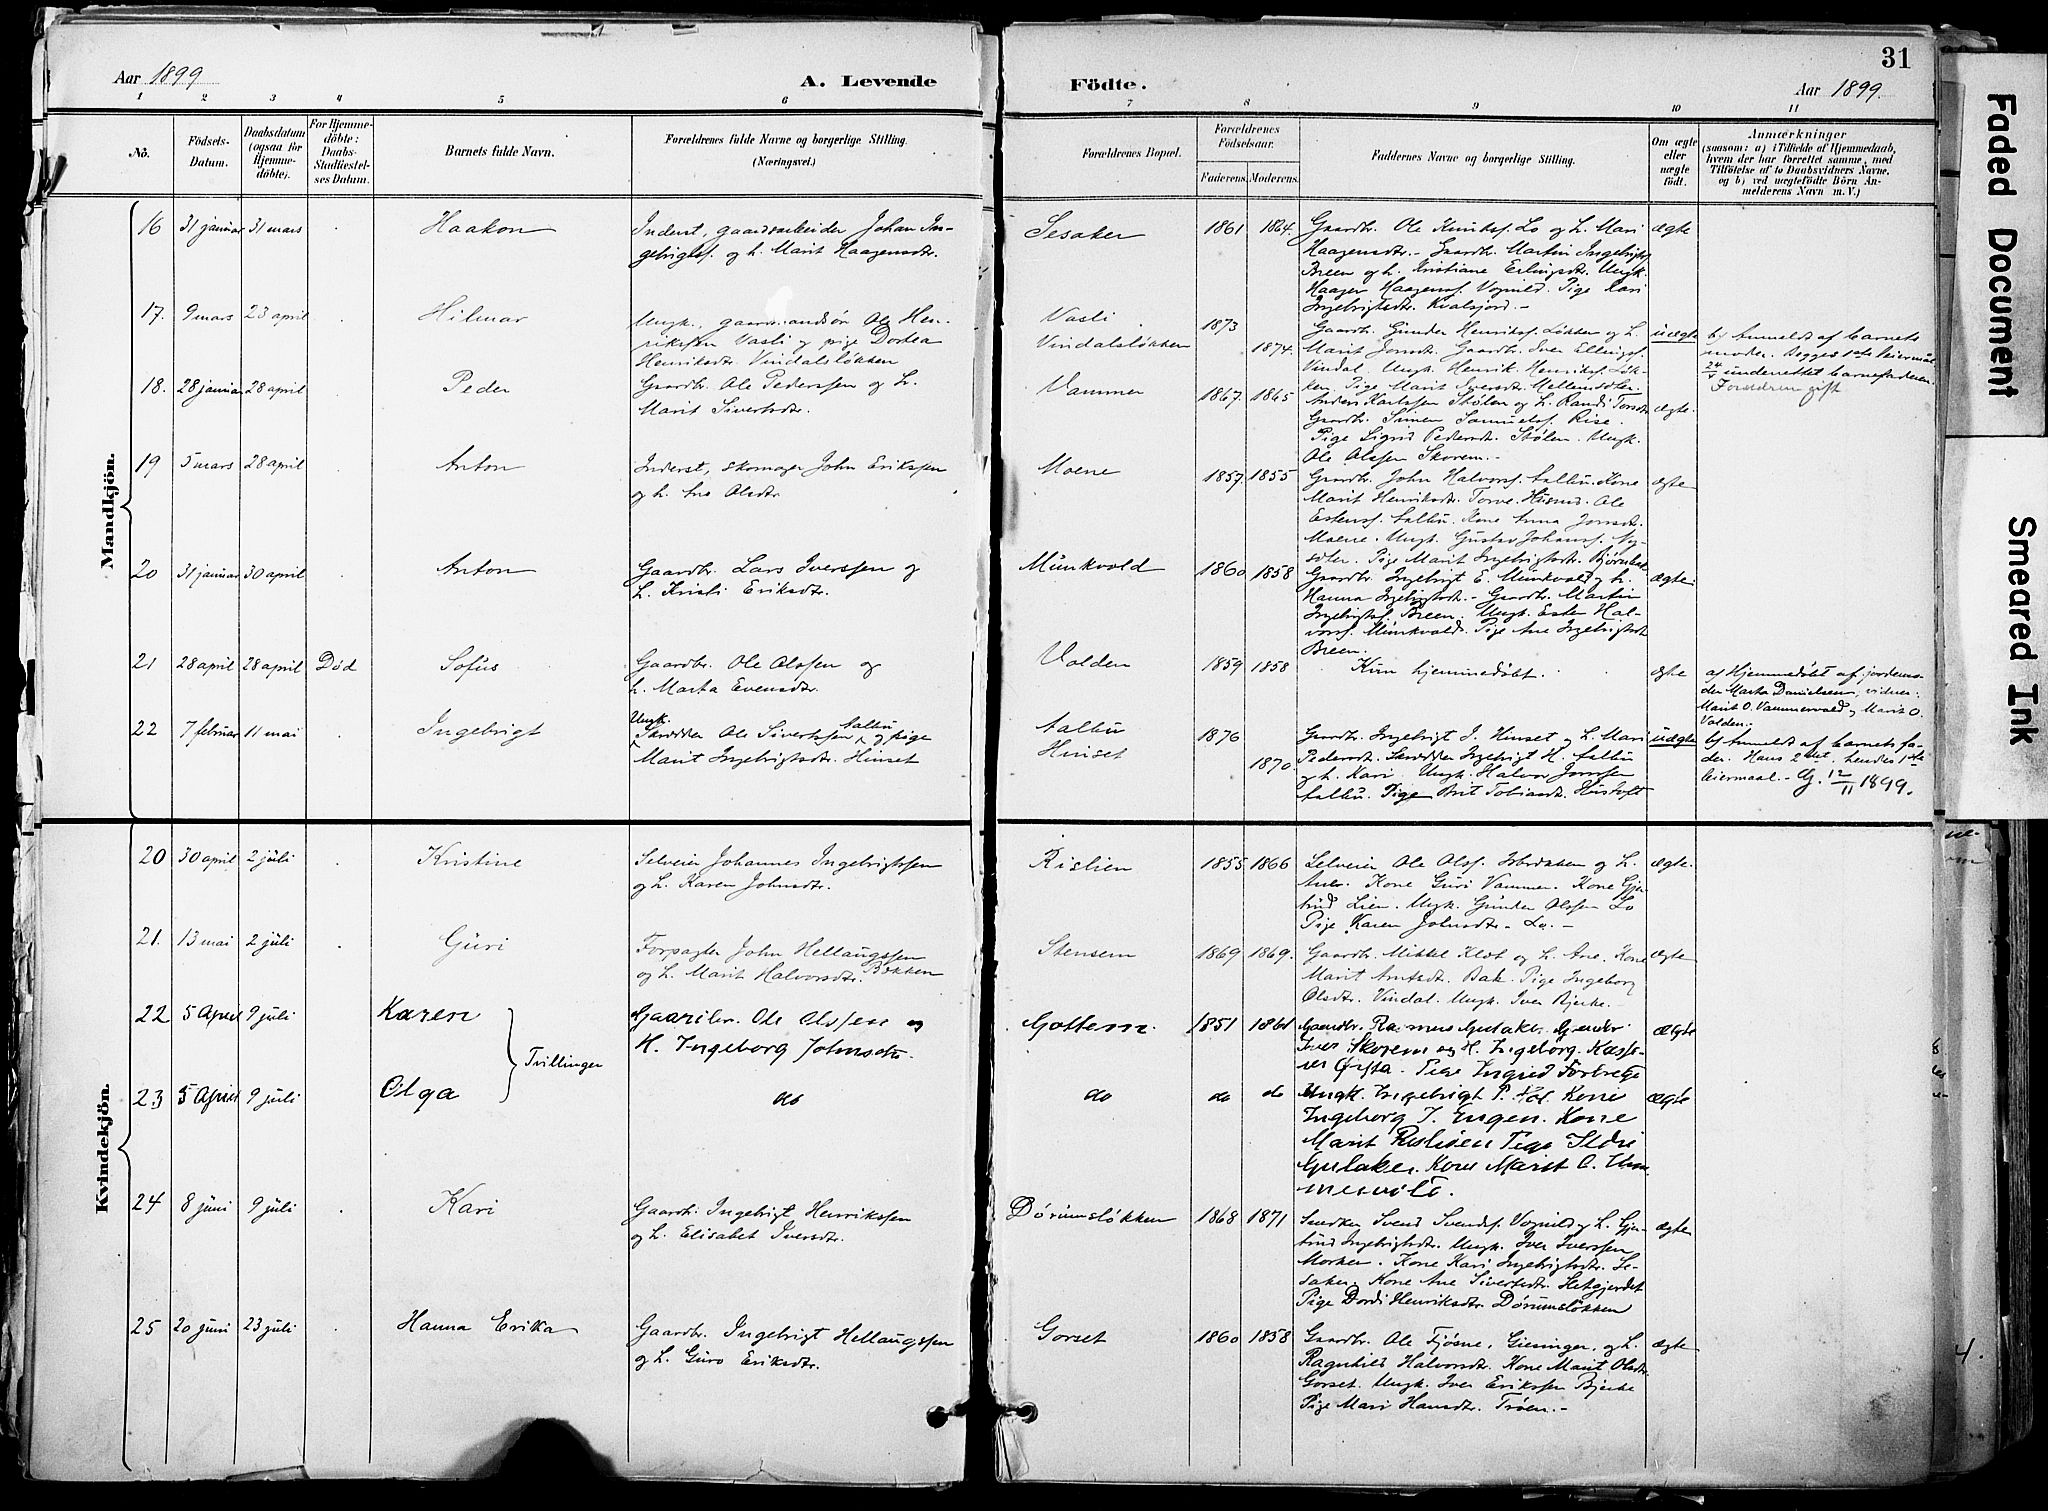 Aar 1899
A. Levende
Födte.
Aar 1899.
31
1 2 3 4 5 6 7 8 9 10 11
No.
Födsels-
Datum.
Daabsdatum
(ogsaa for
Hjemme-
döbte).
For Hjemme-
döbte:
Daabs-
Stadfæstel-
ses Datum.
Barnets fulde Navn.
Forældrenes fulde Navne og borgerlige Stilling.
(Næringsvei.)
Forældrenes Bopæl.
Forældrenes
Födselsaar.
Faderens. Moderens.
Faddernes Navne og borgerlige Stilling.
Om ægte
eller
uægte
födt.
Anmærkninger
(saasom: a) i Tilfælde af Hjemmedaab,
hvem der har forrettet samme, med
Tilföielse af to Daabsvidners Navne,
og b) ved uægtefödte Börn An-
melderens Navn m. V.)
Mandkjön.
16 31 januar 31 mars Haakon
Inderst, gaardsarbeider Johan In-
gebrigtss. og h. Marit Haagensdtr.
Sesaker 1861 1864.
Gaardbr. Ole Knutss. Lo og h. Mari
Haagensdtr. - Gaardbr. Martin Ingebrigtss.
Breen og h. Kristiane Erlingsdtr. Ungk.
Haagen Haagenss. Vognild. Pige Kari
Ingebrigtsdtr. Kvalsjord. -
ægte
17. 9 mars 23 april Hilmar
Ungk., gaardmandsøn Ole Hen-
rikssen Vasli og pige Dortea
Henriksdtr. Vindalsløkken
Vasli
Vindalsløkken
1873
1874.
Gaardbr. Gunder Henrikss. Løkken og h.
Marit Jonsdtr. Gaardbr. Iver Ellingss.
Vindal. Ungk. Henrik Henrikss. Løk-
ken. Pige Marit Iversdtr. Mellemsæter.
uægte
b) Anmeldt af barnets
moder. Begges 1ste leiermaal.
underrettet barnefaderen.
Forældrene gift
18. 28 januar 28 april Peder
Gaardbr. Ole Pederssen og h.
Marit Sivertsdtr.
Vammer 1867. 1865
Anders Karlssen Stølen og h. Randi Torsdtr.
Gaardbr. Simen Samuelss. Rise.
Pige Sigrid Pedersdtr. Stølen. Ungk.
Ole Olssen Skorem. -
ægte.
19 5 mars 28 april Anton
Inderst, skomager John Erikssen
og h. Ane Olsdtr.
Moene 1857. 1855
Gaardbr. John Halvorss. Aalbu. Kone
Marit Henriksdtr. Torve. Husmd. Ole
Estenss. Aalbu. Kone Anna Jonsdtr.
Moene. Ungk. Gustav Johanss. Ny-
sæter. Pige Marit Ingebrigtsdtr. Bjørnbæk
ægte
20 31 januar 30 april Anton
Gaardbr. Lars Iverssen og
h. Kristi Eriksdtr.
Munkvold 1860 1858
Gaardbr. Ingebrigt E. Munkvold og h.
Hanna Ingebrigtsdtr. - Gaardbr. Martin
Ingebrigtss. Breen. Ungk. Esten Hal-
vorss. Munkvold. Pige Ane Ingebrigtsdtr.
Breen.
ægte
21 28 april 28 april Død Sofus
Gaardbr. Ole Olssen og
h. Marta Evensdtr.
Volden 1859 1858
Kun hjemmedøbt.
ægte
a) Hjemmedøbt af jordemo-
der Marta Danielsen, vidner:
Marit O. Vammervold og Marit O.
Volden. -
22 7 februar 11 mai Ingebrigt
Ungk.
Skrædder Ole Sivertssen Aalbu og pige
Marit Ingebrigtsdtr. Hinset
Aalbu
Hinset
1876
1870
Gaardbr. Ingebrigt J. Hinset og h. Mari
Pedersdtr. Skrædder Ingebrigt H. Aalbu
og h. Kari. Ungk. Halvor Jonssen
Aalbu. Pige Brit Tobiasdtr. Hustoft
uægte
b) Anmeldt af barnets fa-
der. Hans 2det, hendes 1ste
leiermaal. - Gj. 12/11 1899.
Kvindekjön.
20 30 april 2 juli Kristine
Selveier Johannes Ingebrigtssen
og h. Karen Johnsdtr.
Rislien 1855 1866
Selveier Ole Olss. og h.
Ane. Kone Guri Vammer. Kone Gjer-
trud Lien. Ungk. Gunder Olssen Lo
Pige Karen Johnsdtr. Lo. -
ægte.
21. 13 mai 2 juli Guri
Forpagter John Hellaugssen
og h. Marit Halvorsdtr. Bekken
Stensem 1869 1869.
Gaardbr. Mikkel Klet og h. Ane. Kone
Marit Arntsdtr. Bak. Pige Ingeborg
Olsdtr. Vindal. Ungk. Iver Bjerke. -
ægte
22 5 April 9 juli Karen
Tvillinger
Gaardbr. Ole Olssen og
H. Ingeborg Johnsdtr.
Gottem. 1851 1861
Gaardbr. Rasmus Gulaker.
Iver Skorem og H. Ingeborg. Kasse-
rer Ørsta. Pige Ingrid Fortrøge
ægte
23 5 April 9 juli Olga
do do do do
Ungk. Ingebrigt P. Hol Kone
Ingeborg J. Engen. Kone
Marit Rislien Pige Ildri
Gulaker. Kone Marit O. Vam-
mervold.
ægte
24 8 juni 9 juli Kari
Gaardbr. Ingebrigt Henrikssen
og h. Elisabet Iversdtr.
Dørumsløkken 1868 1871
Snedker Svend Svendss. Vognild og h. Gjer-
trud Ingebrigtsdtr. Ungk. Iver Iverssen
Morken. Kone Kari Ingebrigtsdtr. Se-
saker. Kone Ane Sivertsdtr. Hetgjerdet
Pige Dordi Henriksdtr. Dørumsløkken
ægte
25 20 juni 23 juli Hanna Erika
Gaardbr. Ingebrigt Hellaugssen
og h. Guro Eriksdtr.
Gorset 1860 1858
Gaardbr. Ole Fjøsne, Gisinger, og h.
Ragnhild Halvorsdtr. Kone Marit Olsdtr.
Gorset. Ungk. Iver Erikssen Bjerke
Pige Mari Hansdtr. Trøen. -
ægte
Faded Document
Smeared Ink